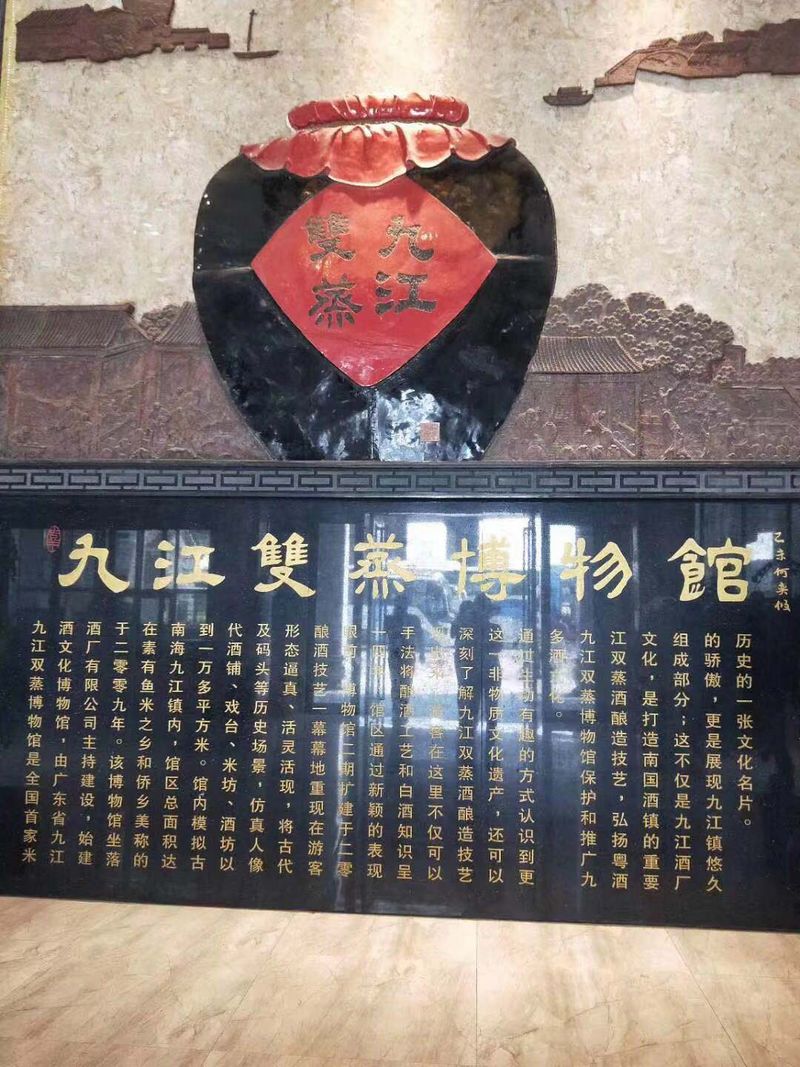 九江
雙蒸
九江雙蒸博物館
乙未何
九江双蒸博物馆是全国首家米
酒文化博物馆，由广东省九江
酒厂有限公司主持建设，始建
于二零零九年。该博物馆坐落
在素有鱼米之乡和侨乡美称的
南海九江镇内，馆区总面积达
到一万多平方米。馆内模拟古
代酒铺、戏台、米坊、酒坊以
及码头等历史场景，仿真人像
形态逼真、活灵活现，将古代
酿酒技艺一幕幕地重现在游客
眼前。博物馆二期扩建于二零
一四年，馆区通过新颖的表现
手法将酿酒工艺和白酒知识呈
现出来，游客在这里不仅可以
深刻了解九江双蒸酒酿造技艺
这一非物质文化遗产，还可以
通过生动有趣的方式认识到更
多酒文化。
九江双蒸博物馆保护和推广九
江双蒸酒酿造技艺，弘扬粤酒
文化，是打造南国酒镇的重要
组成部分；这不仅是九江酒厂
的骄傲，更是展现九江镇悠久
历史的一张文化名片。